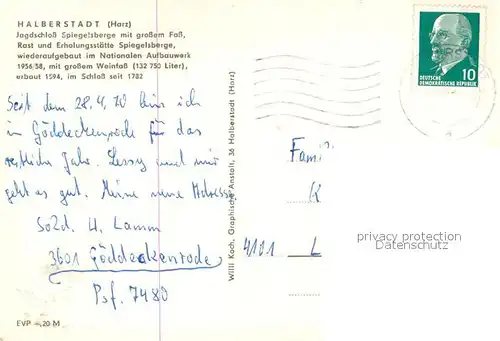 HALBERSTADT (Harz)
Jagdschloß Spiegelsberge mit großem Faß,
Rast und Erholungsstätte Spiegelsberge,
wiederaufgebaut im Nationalen Aufbauwerk
1956/58, mit großem Weinfaß (132 750 Liter),
erbaut 1594, im Schloß seit 1782
Seit dem 28.4.70 bin ich
in Göddeckenrode für das
restliche Jahr. Lessy und mir
geht es gut. Meine neue Adresse
Sold. H. Lamm
3601 Göddeckenrode
Psf. 7480
EVP -,20 M
Willi Koch, Graphische Anstalt, 36 Halberstadt (Harz)
DEUTSCHE
DEMOKRATISCHE REPUBLIK
10
Famil
K
4101 L
privacy protection
Datenschutz